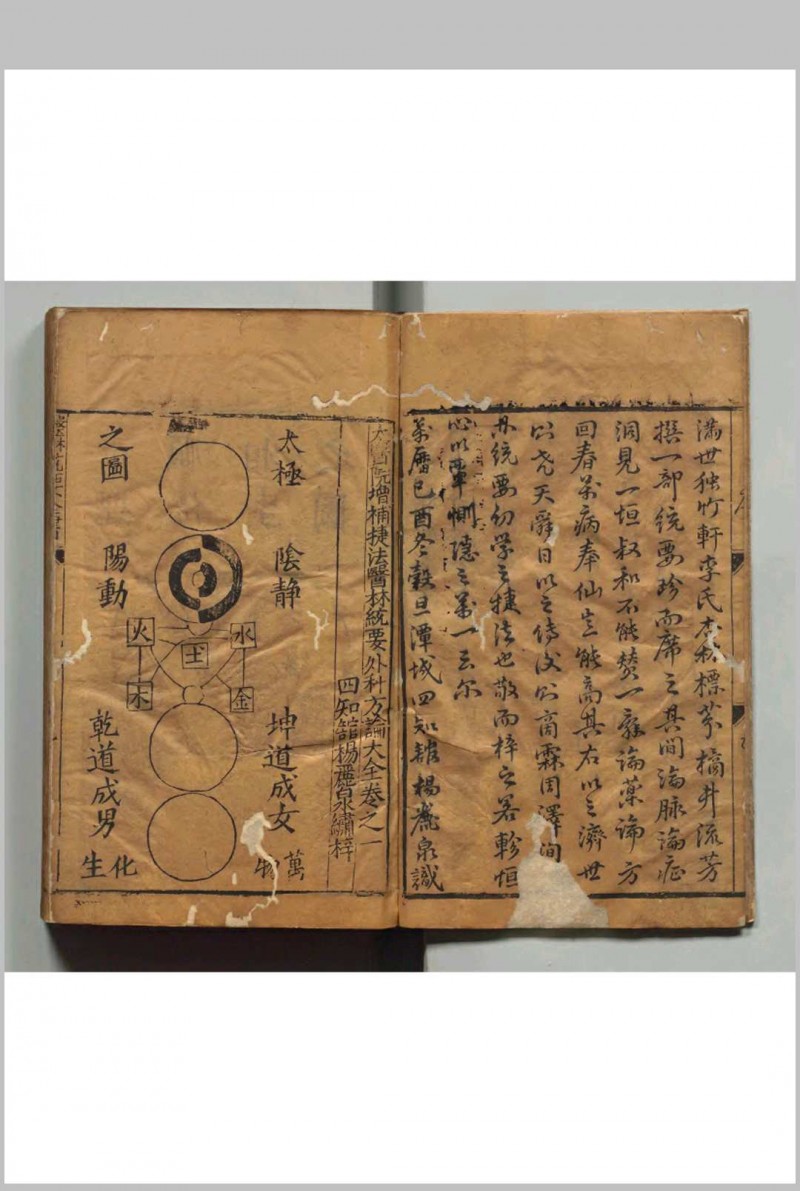 满世独竹軒李氏杏林標芬橘井流芳
撰一部統要珍而席之其间論脉論症
洞見一垣叔和不能赞一辞論藥論方
回春萬病奉仙岂能高其右以之濟世
则尧天舜日以之傳後则商霖周澤间
統要幼学之捷法也敬而梓之畧軫恒
心以單惻隱之萬一云尔
萬曆己酉冬穀旦潭城四知舘楊麗泉識
太醫院增補捷法醫林統要外科方論大全卷之一
四知舘楊麗泉繡梓
太極
之圖
陰静
陽動
水
火
土
金
木
坤道成女
乾道成男
萬物
化生